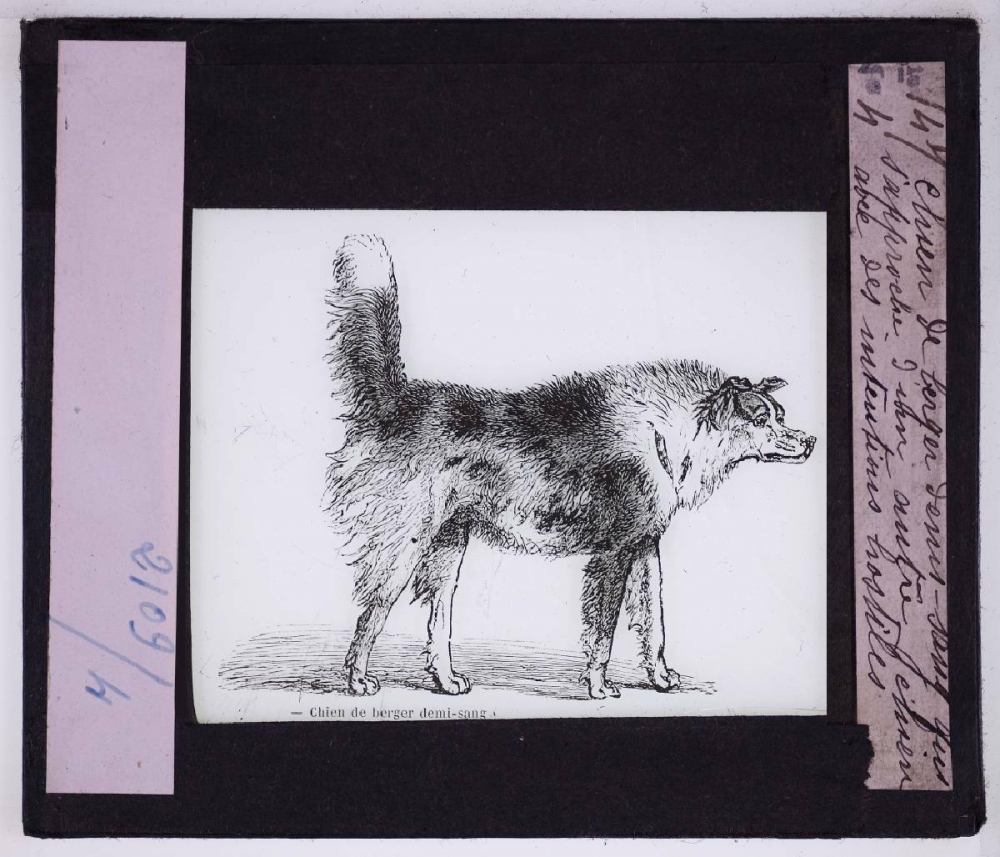 14 4 Chien de berger demi-sang qui
s'approche d'un autre chien
4 avec des intentions hostiles
— Chien de berger demi-sang
4/
6012/